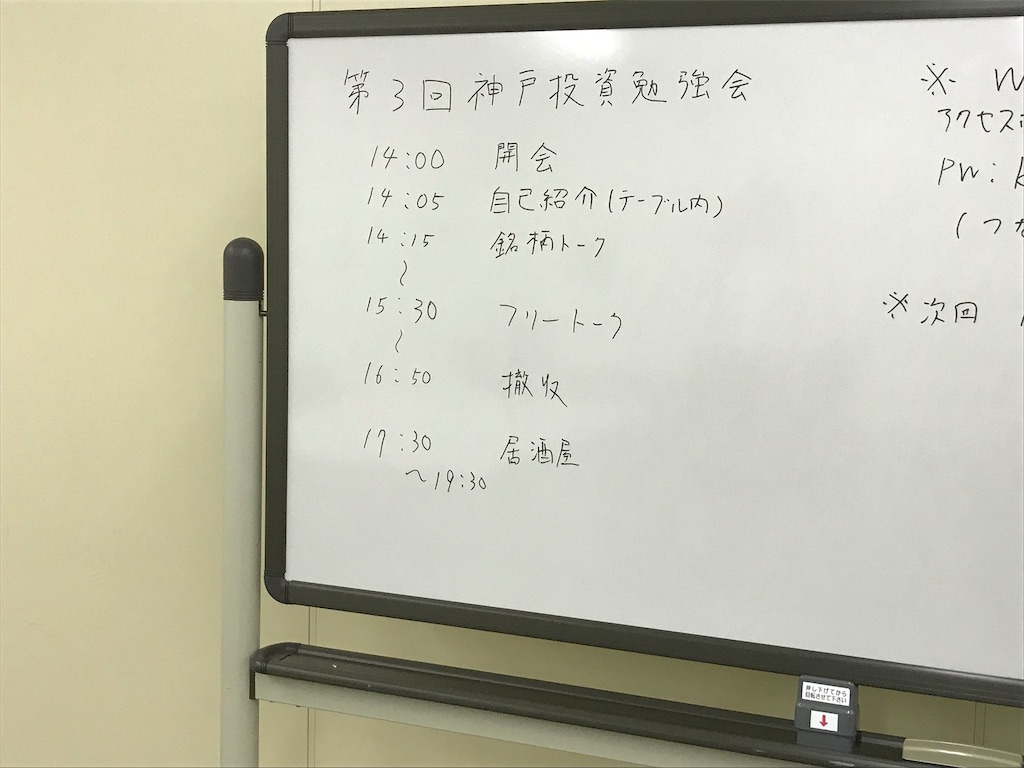 第3回神戸投資勉強会
14:00 開会
14:05 自己紹介(テーブル内)
14:15 銘柄トーク
〜
15:30 フリートーク
〜
16:50 撤収
17:30 居酒屋
〜19:30
※ W
アクセス
PW:
(つな
※次回
押し下げてから
回転させて下さい